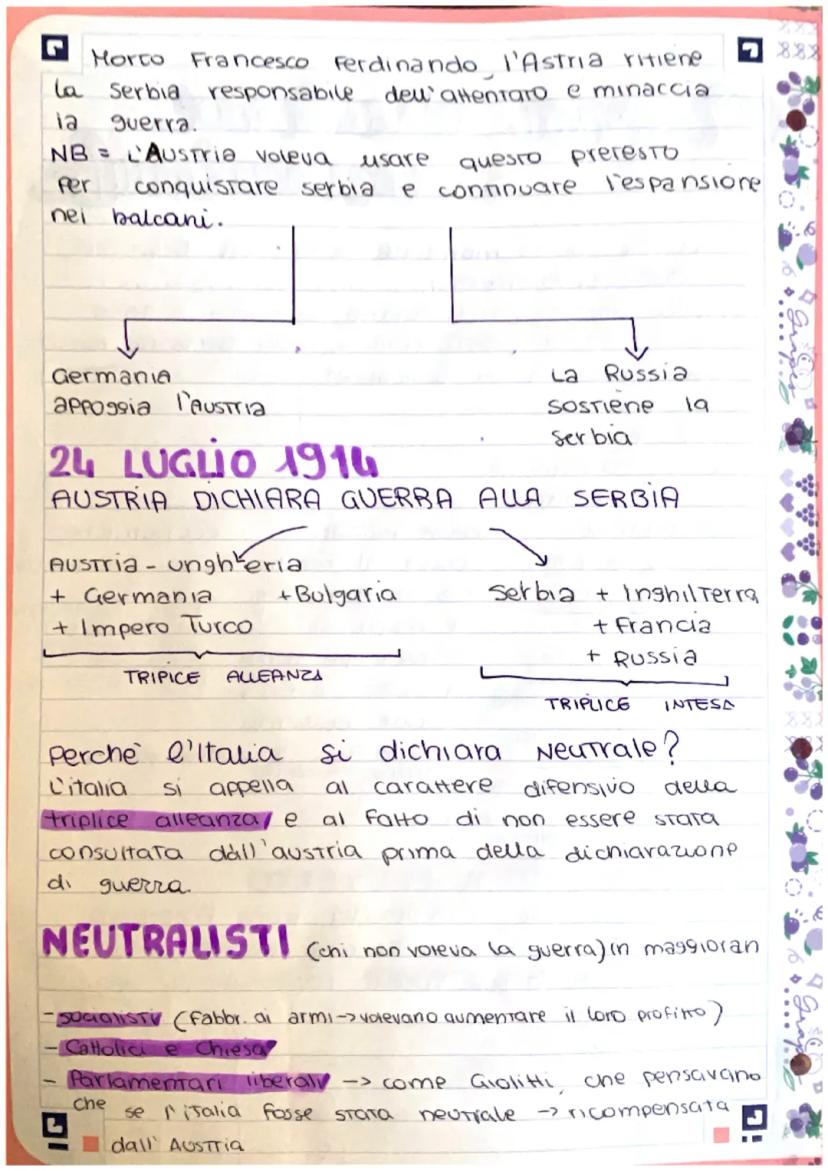 Morto Francesco Ferdinando, l'Astria ritiene
la Serbia responsabile dell'attentato e minaccia
la guerra.
NB = L'Austria voleva usare questo pretesto
per conquistare serbia e continuare l'espansione
nei balcani.
Germania
appoggia l'Austria
La Russia
sostiene la
serbia
24 LUGLIO 1914
AUSTRIA DICHIARA GUERRA ALLA SERBIA
Austria - ungheria
+ Germania +Bulgaria
+ Impero Turco
TRIPICE ALLEANZA
Serbia + Inghilterra
+ Francia
+ Russia
TRIPLICE INTESA
perchè l'Italia si dichiara Neutrale?
L'italia si appella al carattere difensivo della
triplice alleanza e al fatto di non essere stata
consultata dall'austria prima della dichiarazione
di guerra.
NEUTRALISTI (chi non voleva la guerra) in maggioran
- socialisti (fabbr. di armi -> volevano aumentare il loro profitto)
- Cattolici e Chiesa
- Parlamentari liberali -> come Giolitti, che pensavano
che se l'italia fosse stata neutrale -> ricompensata
dall' Austria
Grapes
Grapes